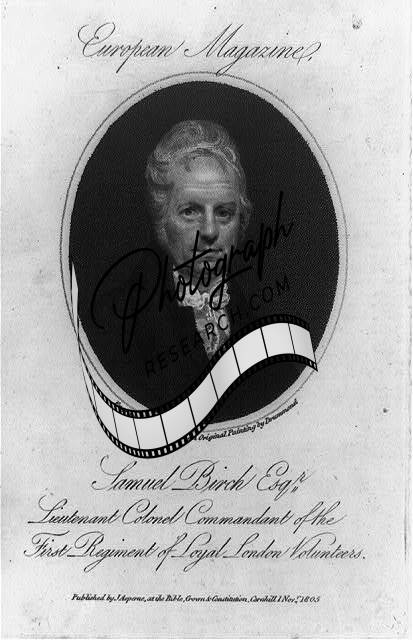 European Magazine.
Photograph
RESEARCH.COM
Original Painting by Drummond
Samuel Birch Esqr.
Lieutenant Colonel Commandant of the
First Regiment of Loyal London Volunteers.
Published by J. Asperne, at the Bible, Crown & Constitution, Cornhill 1 Novr. 1805